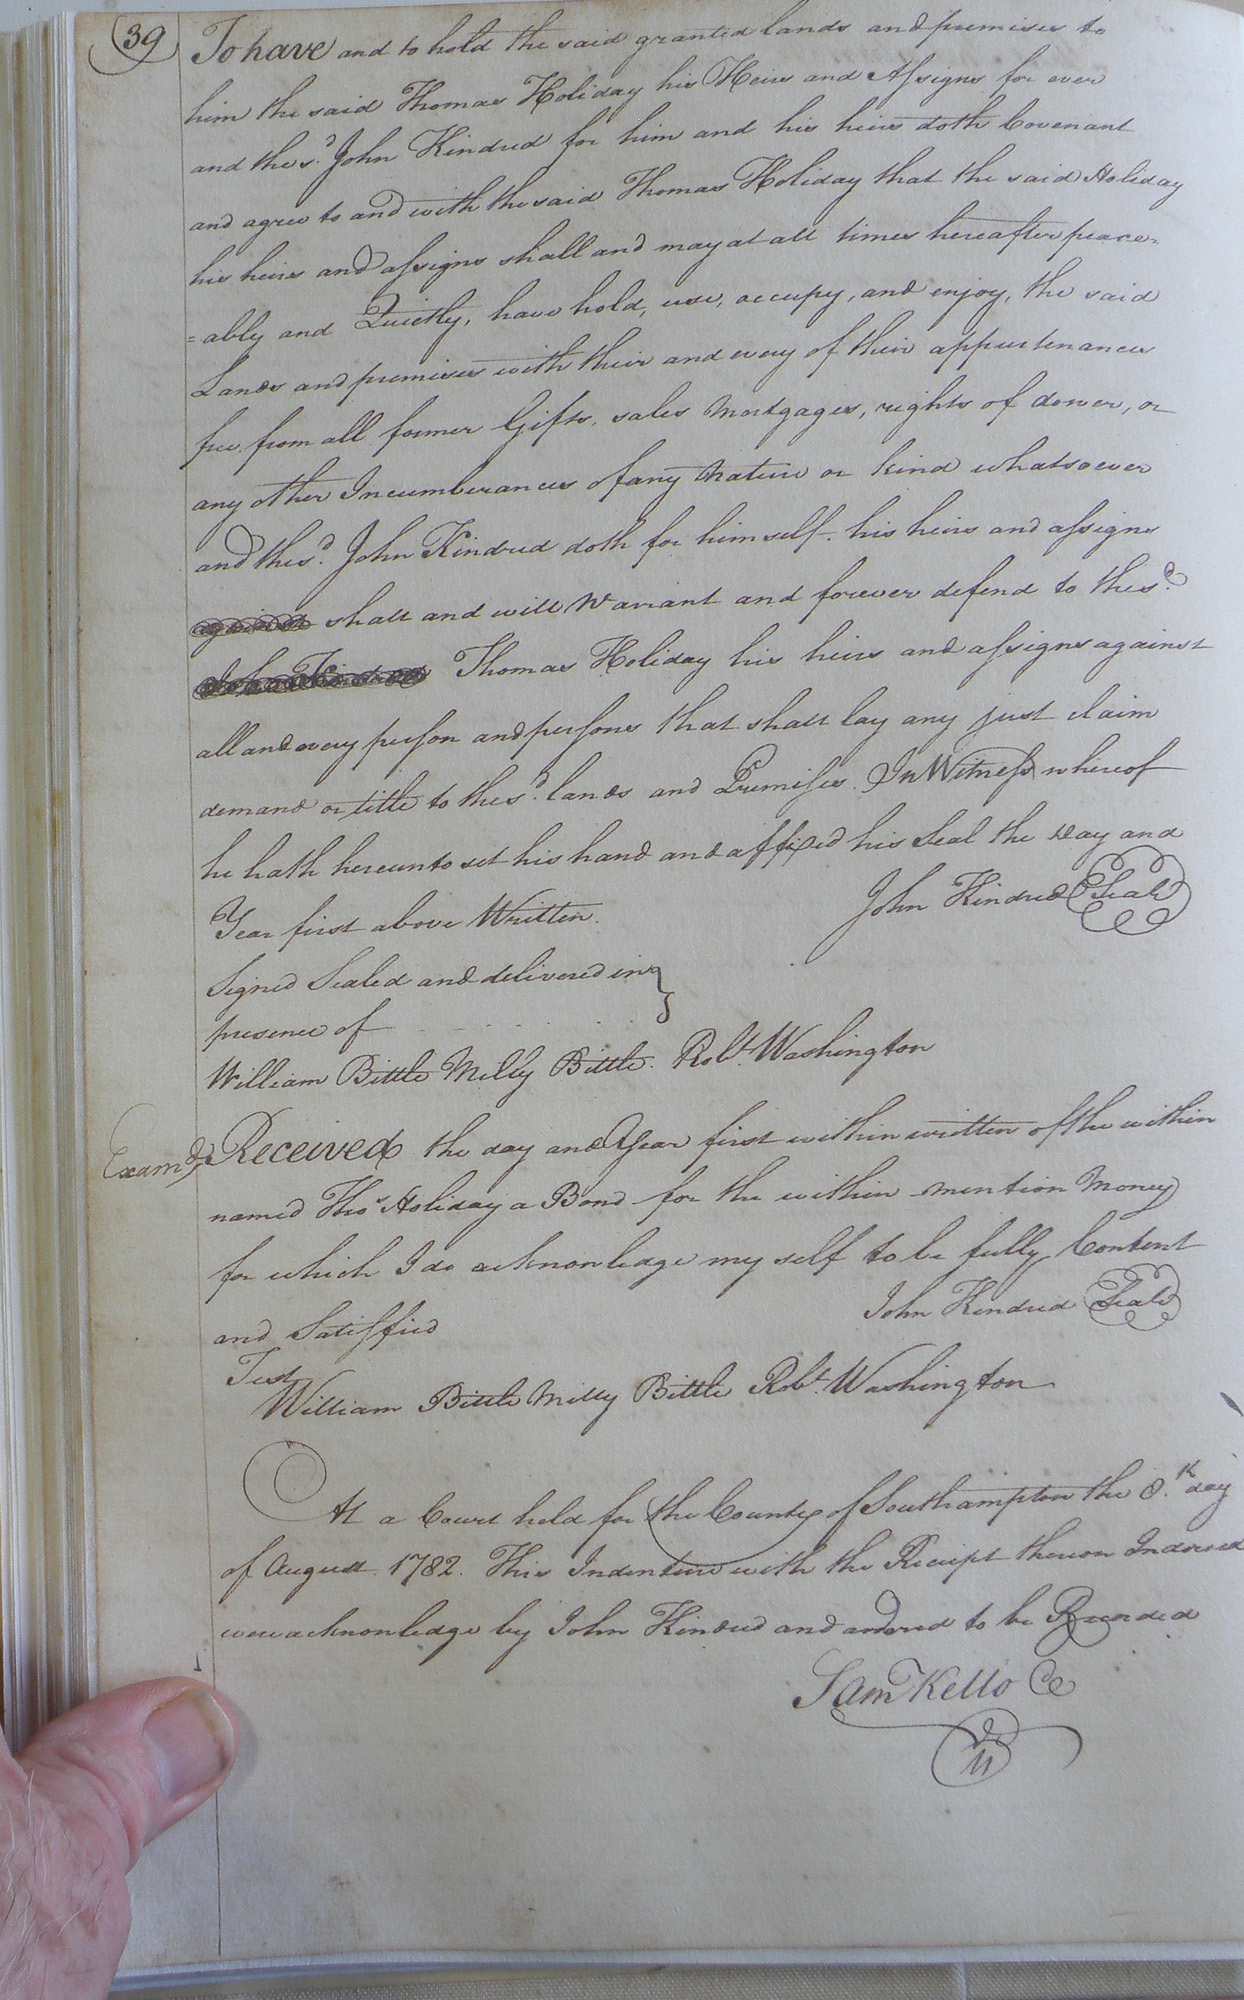 39
To have and to hold the said granted lands and premises to
him the said Thomas Holiday his Heirs and Assigns for ever
and the sd. John Kindred for him and his heirs doth Covenant
and agree to and with the said Thomas Holiday that the said Holiday
his heirs and assigns shall and may at all times hereafter peace=
=ably and Quietly, have hold, use, occupy, and enjoy, the said
Lands and premises with their and every of their appurtenances
free from all former Gifts, sales Mortgages, rights of dower, or
any other Incumberances of any Nature or kind whatsoever
and the sd. John Kindred doth for himself his heirs and assigns
against shall and will Warrant and forever defend to the sd.
John Kindred Thomas Holiday his heirs and assigns against
all and every person and persons that shall lay any just claim
demand or title to the sd. lands and Premises. In Witness whereof
he hath hereunto set his hand and affixed his Seal the day and
Year first above Written.
John Kindred Seal
Signed Sealed and delivered in
presence of
William Bittle Milly Bittle. Robt. Washington
Examd.
Received the day and Year first within written of the within
named Thos. Holiday a Bond for the within mention Money
for which I do acknowledge my self to be fully Content
and Satisfied
John Kindred Seal
Test
William Bittle Milly Bittle Robt. Washington
At a Court held for the County of Southampton the 8.th day
of August 1782. This Indenture with the Receipt thereon Indorsed
were acknowledge by John Kindred and ordered to be Recorded
Sam Kello Cl